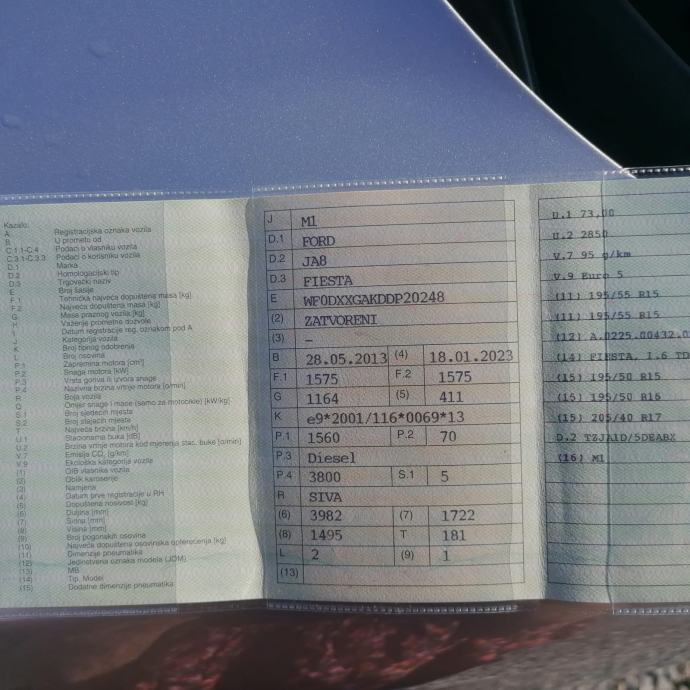 Kazalo:
A Registracijska oznaka vozila
B U prometu od
C.1.1-C.4 Podaci o vlasniku vozila
C.3.1-C.3.3 Podaci o korisniku vozila
D.1 Marka
D.2 Homologacijski tip
D.3 Trgovački naziv
E Broj šasije
F.1 Tehnička najveća dopuštena masa [kg]
F.2 Najveća dopuštena masa [kg]
G Masa praznog vozila [kg]
H Važenje prometne dozvole
I Datum registracije reg. oznakom pod A
J Kategorija vozila
K Broj tipnog odobrenja
L Broj osovina
P.1 Zapremina motora [cm³]
P.2 Snaga motora [kW]
P.3 Vrsta goriva ili izvora snage
P.4 Nazivna brzina vrtnje motora [o/min]
R Boja vozila
Q Omjer snage i mase (samo za motocikle) [kW/kg]
S.1 Broj sjedećih mjesta
S.2 Broj stajaćih mjesta
T Najveća brzina [km/h]
U.1 Stacionarna buka [dB]
U.2 Brzina vrtnje motora kod mjerenja stac. buke [o/min]
V.7 Emisija CO₂ [g/km]
V.9 Ekološka kategorija vozila
(1) OIB vlasnika vozila
(2) Oblik karoserije
(3) Namjena
(4) Datum prve registracije u RH
(5) Dopuštena nosivost [kg]
(6) Duljina [mm]
(7) Širina [mm]
(8) Visina [mm]
(9) Broj pogonskih osovina
(10) Najveća dopuštena osovinska opterećenja [kg]
(11) Dimenzije pneumatika
(12) Jedinstvena oznaka modela (JOM)
(13) MB
(14) Tip, Model
(15) Dodatne dimenzije pneumatika
J M1
D.1 FORD
D.2 JA8
D.3 FIESTA
E WF0DXXGAKDDP20248
(2) ZATVORENI
(3) –
B 28.05.2013 (4) 18.01.2023
F.1 1575 F.2 1575
G 1164 (5) 411
K e9*2001/116*0069*13
P.1 1560 P.2 70
P.3 Diesel
P.4 3800 S.1 5
R SIVA
(6) 3982 (7) 1722
(8) 1495 T 181
L 2 (9) 1
(13)
U.1 73,00
U.2 2850
V.7 95 g/km
V.9 Euro 5
(11) 195/55 R15
(11) 195/55 R15
(12) A.0225.00432.0
(14) FIESTA, 1.6 TD
(15) 195/50 R15
(15) 195/50 R16
(15) 205/40 R17
D.2 TZJA1D/5DEABX
(16) M1